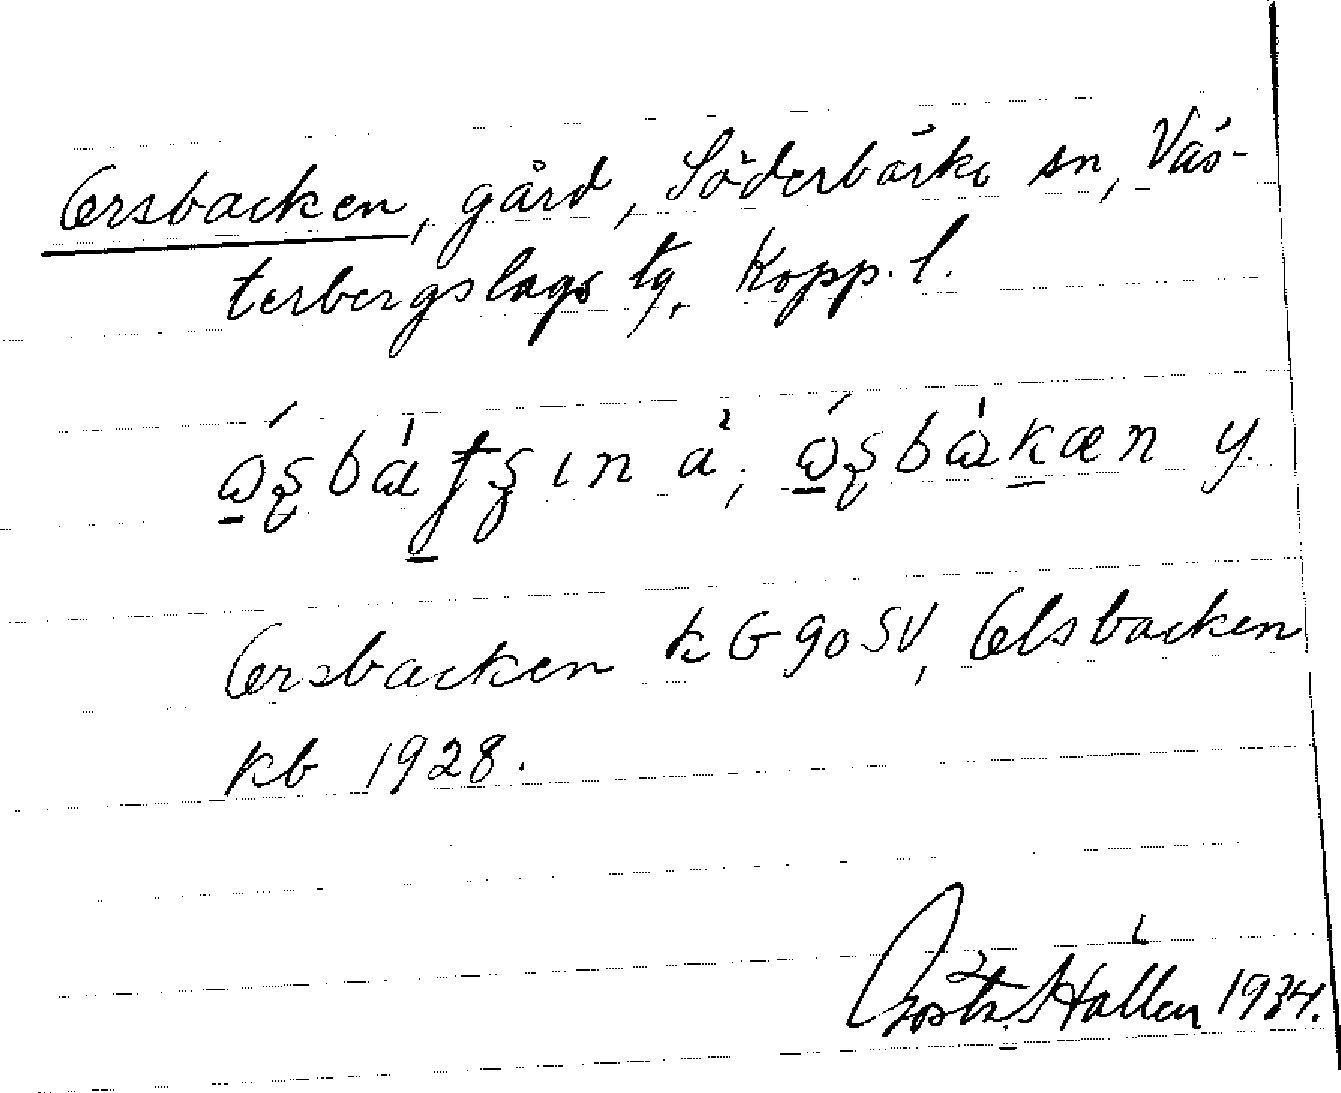 Ersbacken, gård, Söderbärke sn, Väs-
terbergslags tg, Kopp. l.
å; y.
Ersbacken k G 90 SV, Elsbacken
kb 1928.
Gösta Hallén 1934.